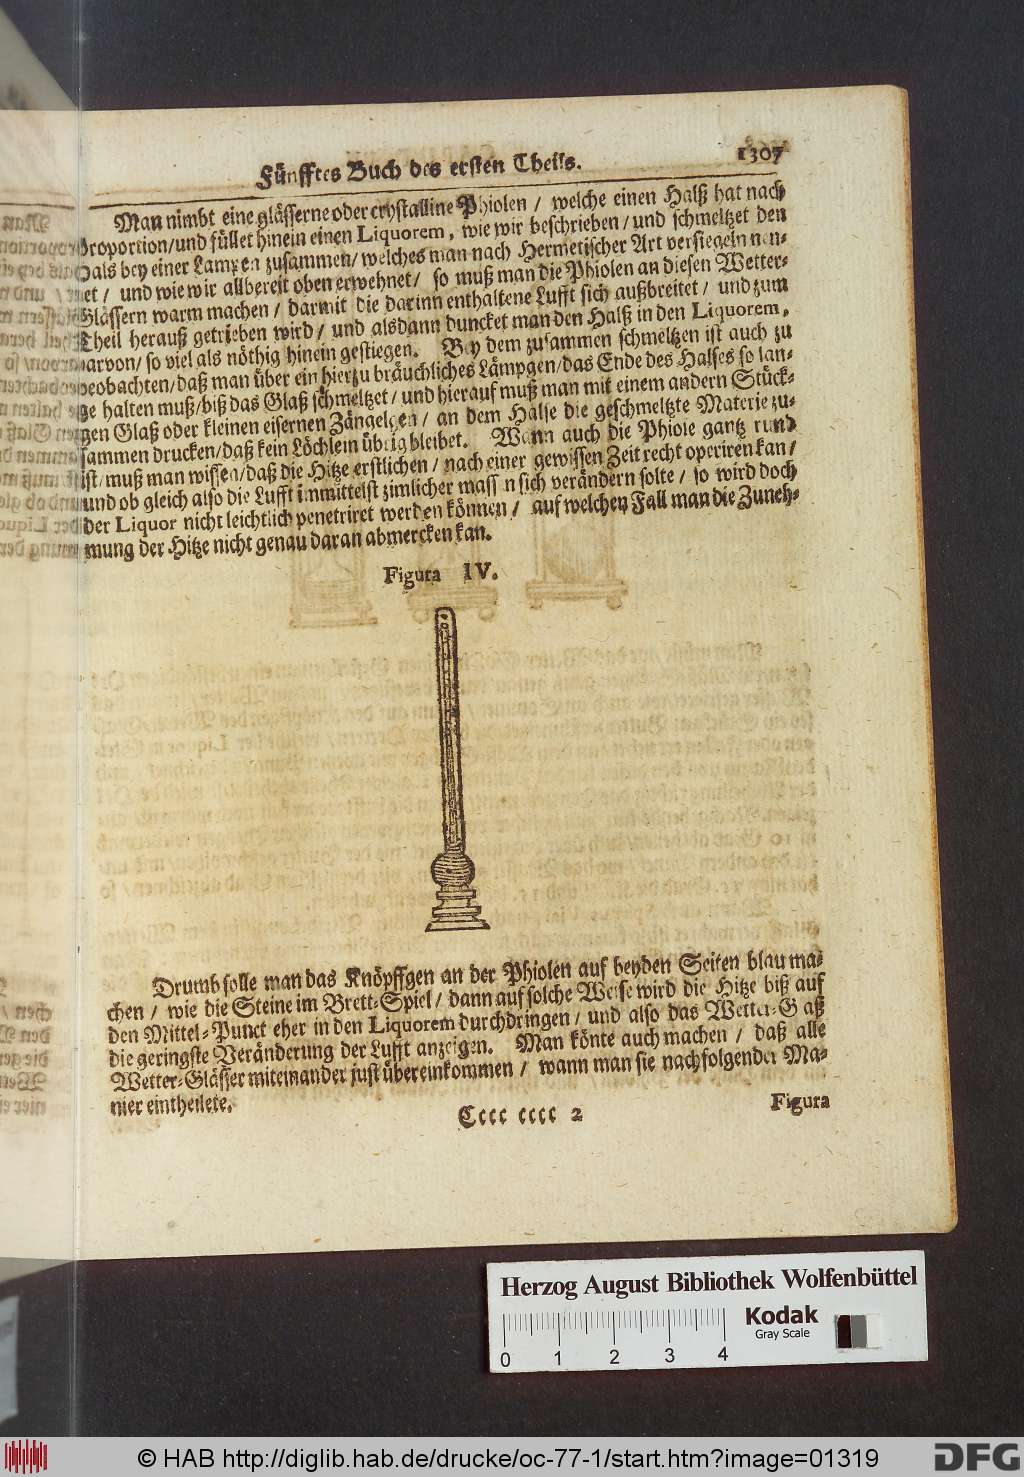 Fünfftes Buch des ersten Theils. 1307
Man nimbt eine gläserne oder crystalline Phiolen / welche einen Halß hat nach
Proportion/und füllet hinein einen Liquorem, wie wir beschrieben/und schmeltzet den
Hals bey einer Lampen zusammen/welches man nach Hermetischer Art versiegeln nen-
net / und wie wir allbereit oben erwehnet / so muß man die Phiolen an diesen Wetter-
Glässern warm machen / darmit die darinn enthaltene Lufft sich außbreitet / und zum
Theil herauß getrieben wird / und alsdann duncket man den Halß in den Liquorem,
darvon/ so viel als nöthig hinein gestiegen. Bey dem zusammen schmeltzen ist auch zu
beobachten/daß man über ein hierzu bräuchliches Lämpgen/das Ende des Halses so lan-
ge halten muß/biß das Glaß schmeltzet/und hierauf muß man mit einem andern Stück-
gen Glaß oder kleinen eisernen Zängelgen / an dem Halse die geschmeltzte Materie zu-
sammen drucken/daß kein Löchlein übrig bleibet. Wann auch die Phiole gantz rund
ist/muß man wissen/daß die Hitze erstlichen/nach einer gewissen Zeit recht operiren kan/
und ob gleich also die Lufft immittelst zimlicher massen sich verändern solte / so wird doch
der Liquor nicht leichtlich penetriret werden können / auf welchen Fall man die Zuneh-
mung der Hitze nicht genau daran abmercken kan.
Figura IV.
Drumb solle man das Knöpffgen an der Phiolen auf beyden Seiten blau ma-
chen / wie die Steine im Brett-Spiel / dann auf solche Weise wird die Hitze biß auf
den Mittel-Punct eher in den Liquorem durchdringen / und also das Wetter-Glaß
die geringste Veränderung der Lufft anzeigen. Man könte auch machen / daß alle
Wetter-Gläser miteinander just übereinkommen / wann man sie nachfolgender Ma-
nier eintheilete.
Cccc cccc 2 Figura
Herzog August Bibliothek Wolfenbüttel
Kodak
Gray Scale
0 1 2 3 4
© HAB http://diglib.hab.de/drucke/oc-77-1/start.htm?image=01319
DFG